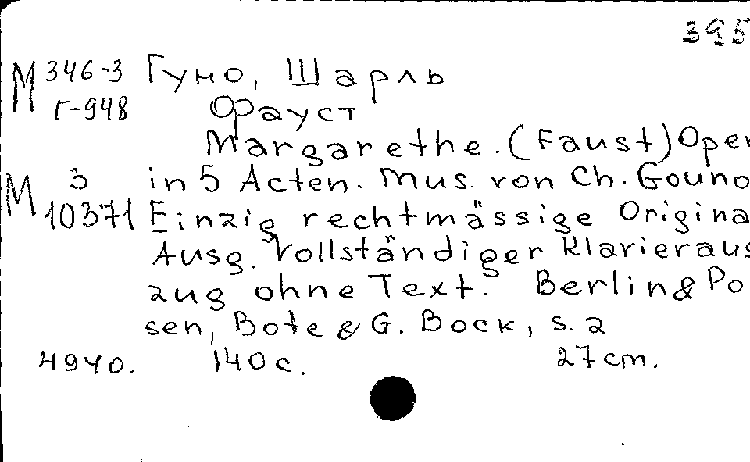 395
М 346-3 Гуно, Шарль
Г-948 Фауст
Margarethe. (Faust) Oper
М 3 in 5 Acten. Mus. von Ch. Gouno
10371 Einzig rechtmässige Origina
Ausg. Vollständiger Klavieraus
zug ohne Text. Berlin & Po
sen, Bote & G. Bock, s. a
4940. 140 c. 27 cm.